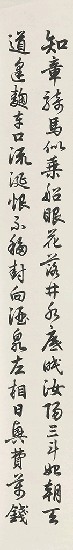 知章騎馬似乘船眼花落井水底眠汝陽三斗始朝天
道逢麴車口流涎恨不移封向酒泉左相日興費萬錢